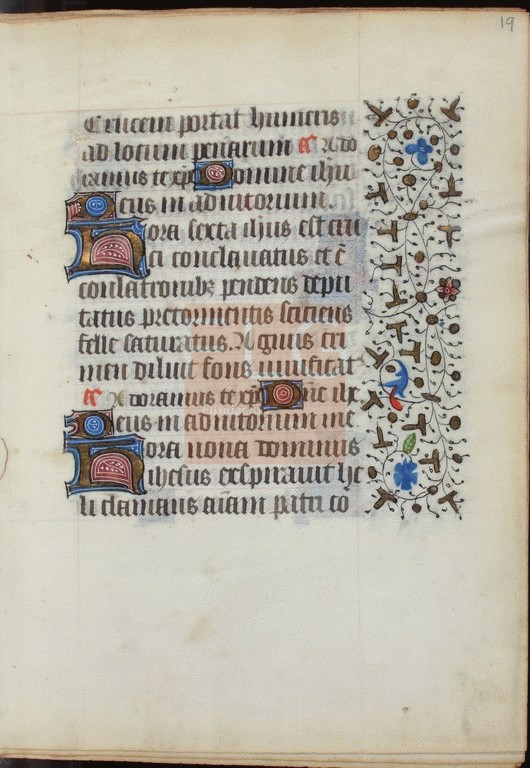 19
Crucem portat humeris
ad locum penarum A do
ramus te xp̄e Domine ihū
Deus in adiutorium.
Hora sexta ihūs est cru
ci conclauatus et ē
cum latronibꝫ pendens depu
tatus pre tormentis siciens
felle saturatus. Agnus cri
men diluit fons uiuificat
Adoramus te xp̄e Dn̄e ih̄x
Deus in adiutorium me
Hora nona dominus
ihesus exspirauit he
li clamans aīam patri co